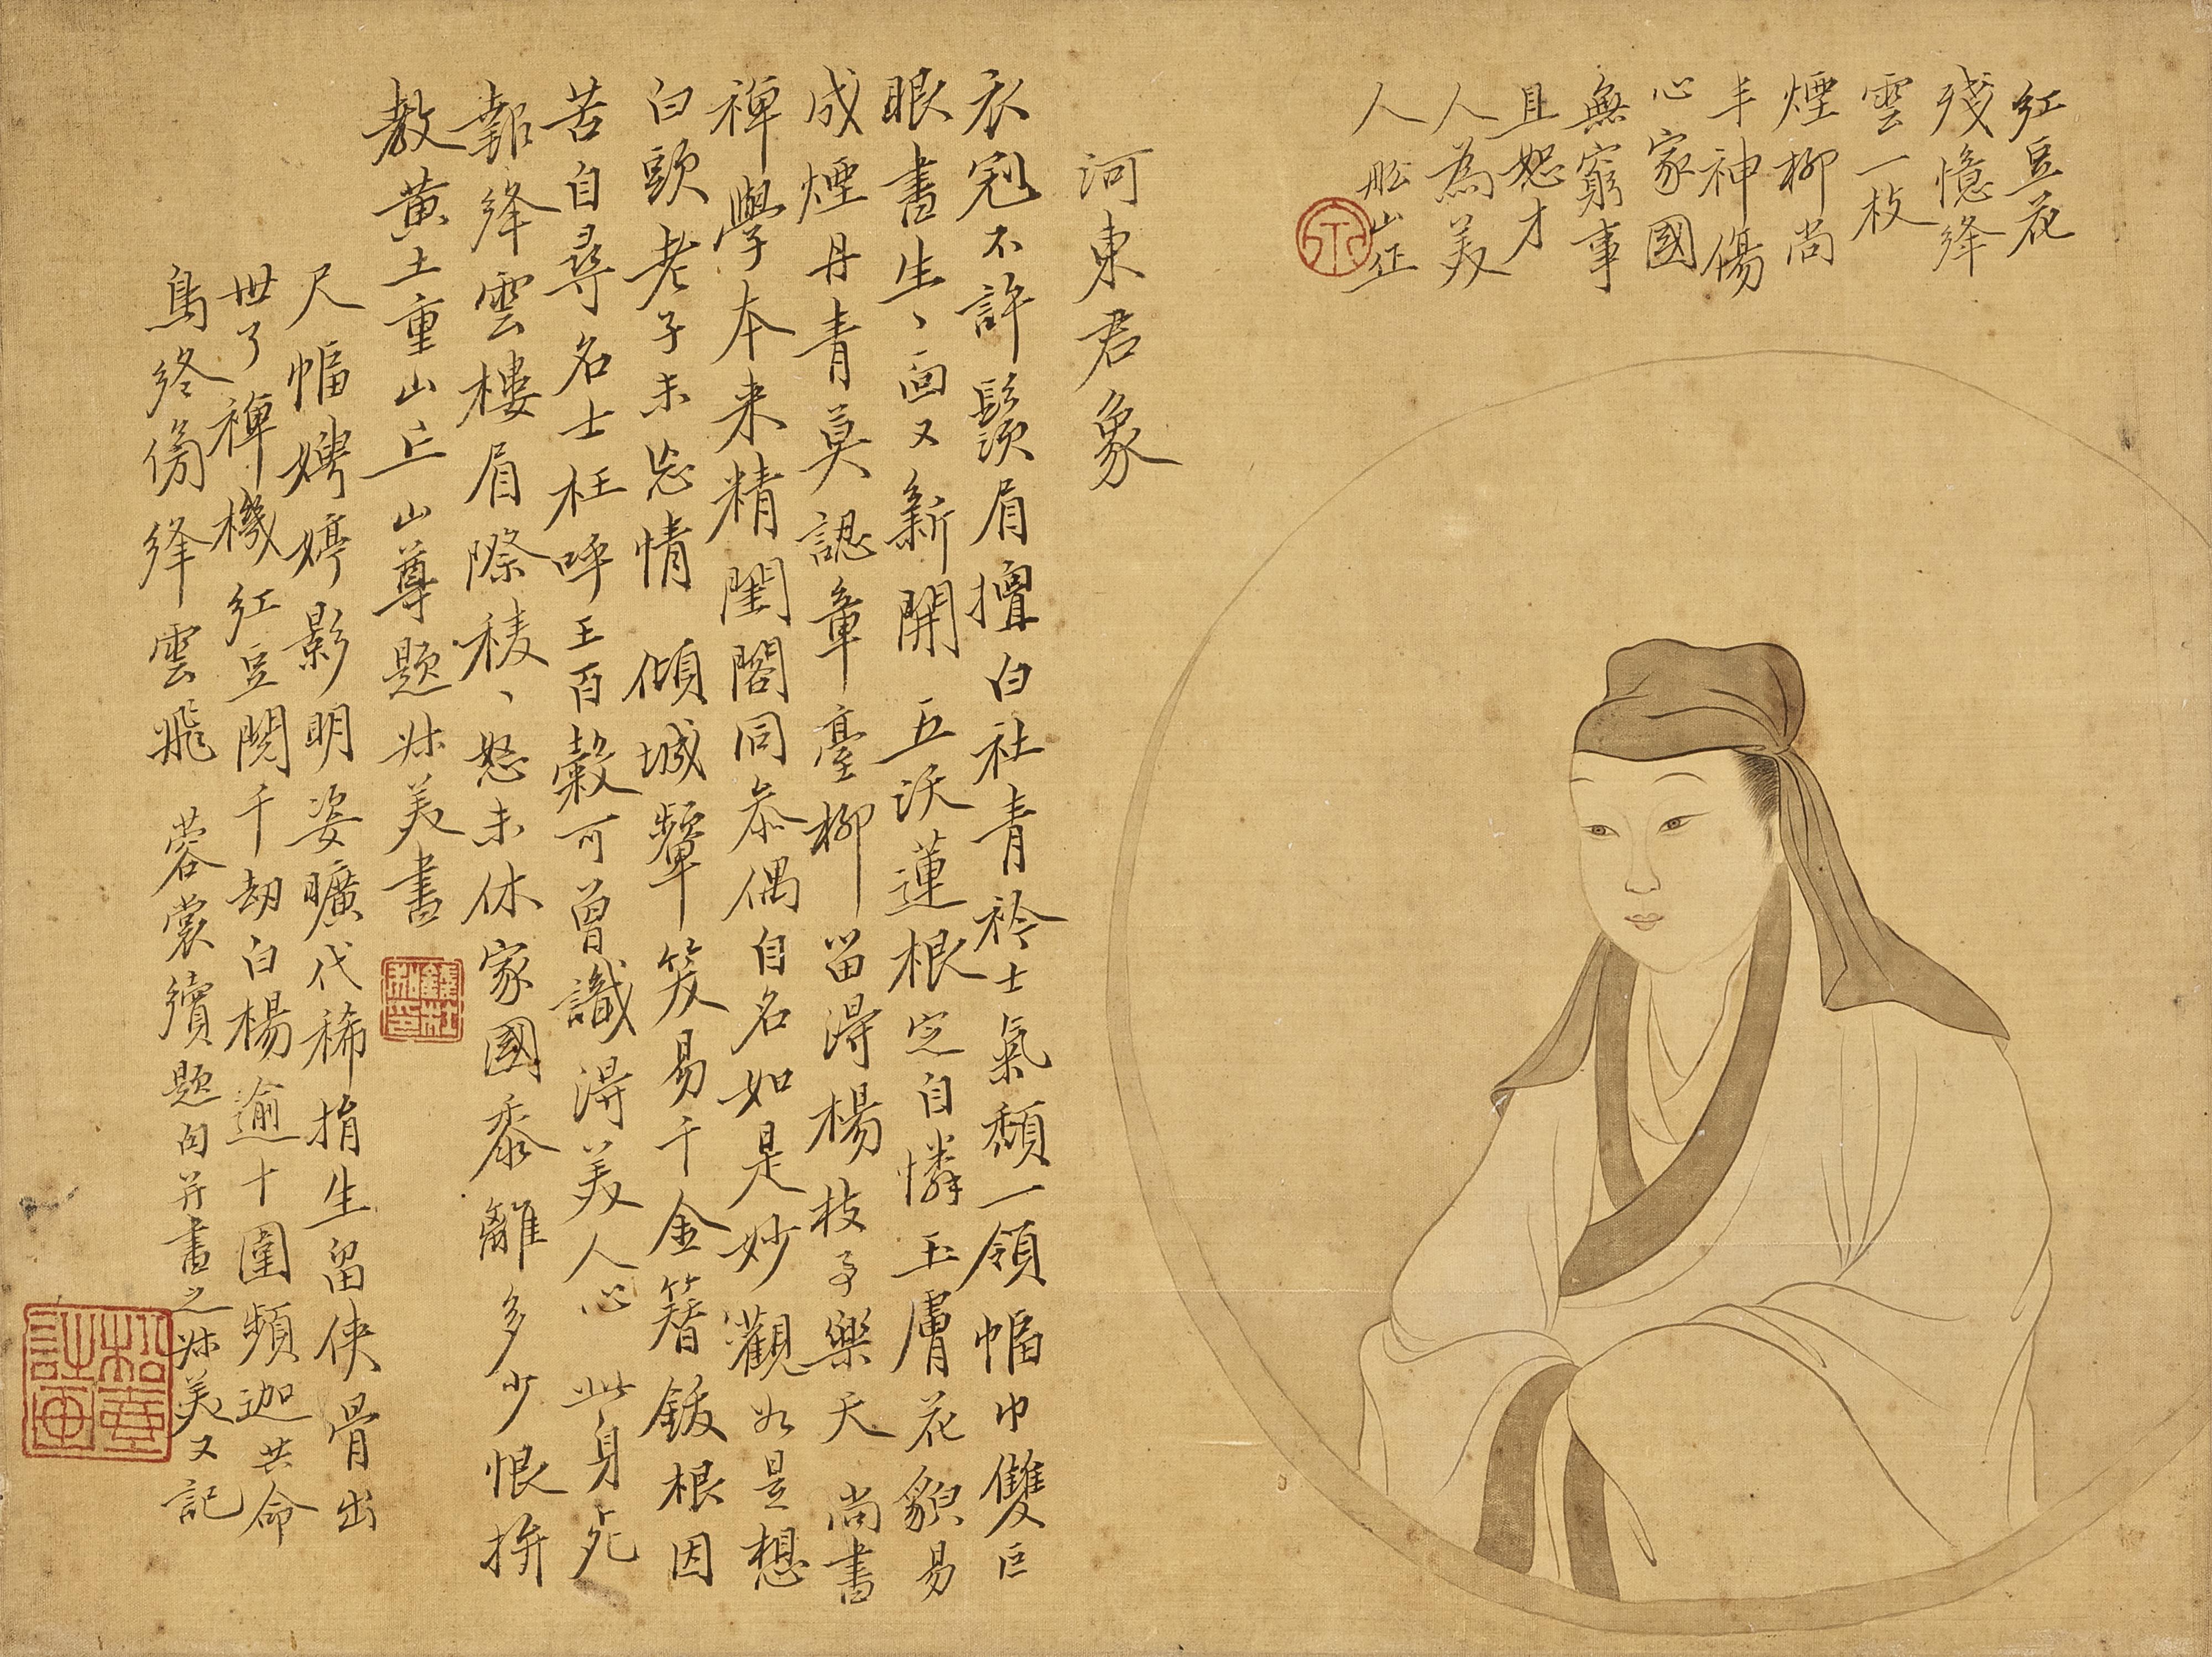 紅豆花
殘憶絳
雲一枝
煙柳尚
丰神傷
心家國
無窮事
且恕才
人為美
人 船山
河東君象
衣冠不許鬚眉擅白社青衿士氣頹一領幅巾雙巨
眼書生、面又新開 五沃蓮根定自憐玉膚花貌易
成煙丹青莫認章臺柳留得楊枝事樂天 尚書
禪學本來精閨閣同參偶自名如是妙觀如是想
白頭老子未忘情 傾城顰笑易千金簪鈸根因
苦自尋名士枉呼王百穀可曾識得美人心 此身死
報絳雲樓眉際稜、怒未休家國黍離多少恨拚
教黃土重山丘 山尊題 妹美書
尺幅娉婷影明姿曠代稀捐生留俠骨出
世了禪機紅豆閱千劫白楊逾十圍頻迦共命
鳥終傍絳雲飛 蓉裳續題句并書之妹美又記